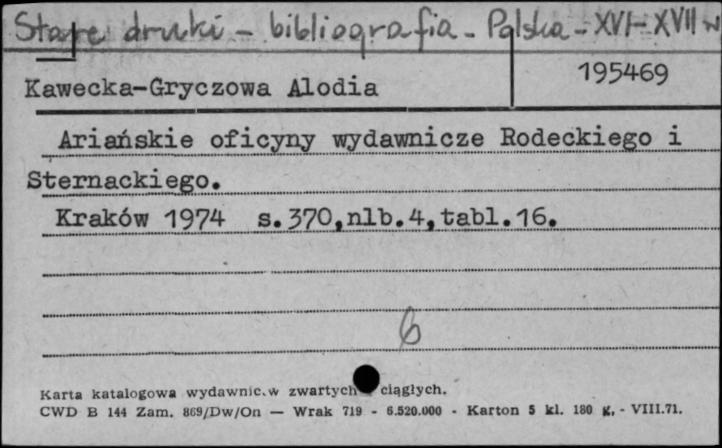 Stare druki - bibliografia - Polska - XVI-XVII w
195469
Kawecka-Gryczowa Alodia
Ariańskie oficyny wydawnicze Rodeckiego i
Sternackiego.
Kraków 1974 s.370,nlb.4,tabl.16.
6
Karta katalogowa wydawnic.w zwartych ciągłych.
CWD B 144 Zam. 869/Dw/On — Wrak 719 - 6.520.000 - Karton 5 kl. 180 g. - VIII.71.